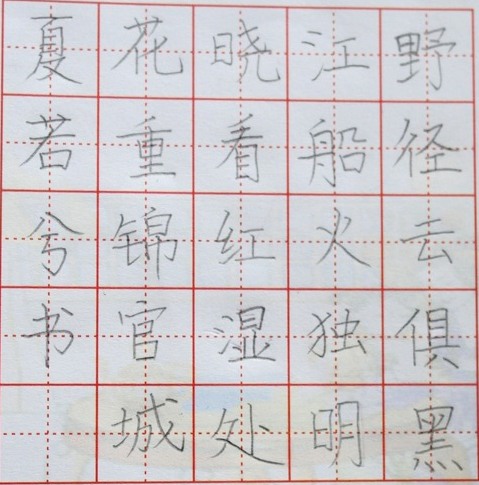 野径云俱黑
江船火独明
晓看红湿处
花重锦官城
夏若兮书